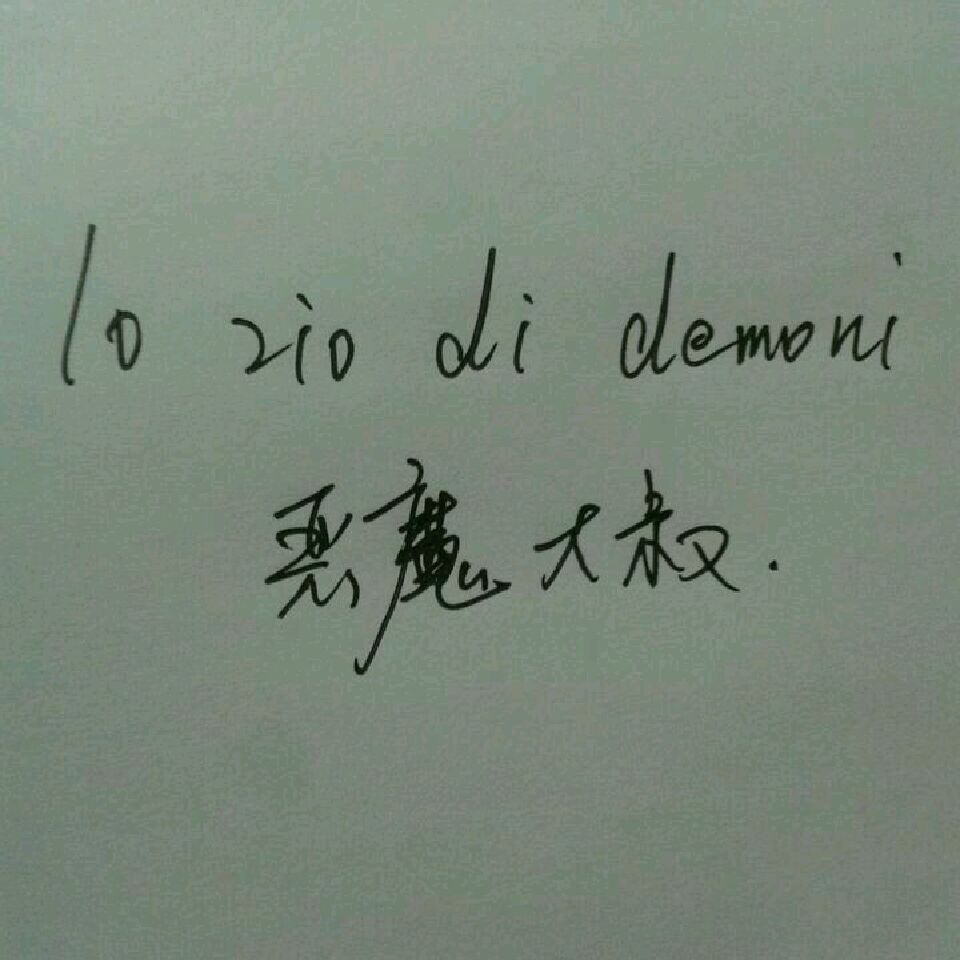 lo zio di demoni
恶魔大叔.